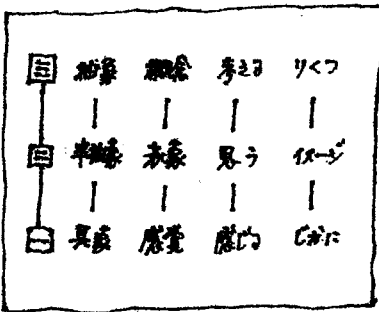 三 抽象 概念 考える りくつ
二 半抽象 表象 思う イメージ
一 具象 感覚 感じる じかに